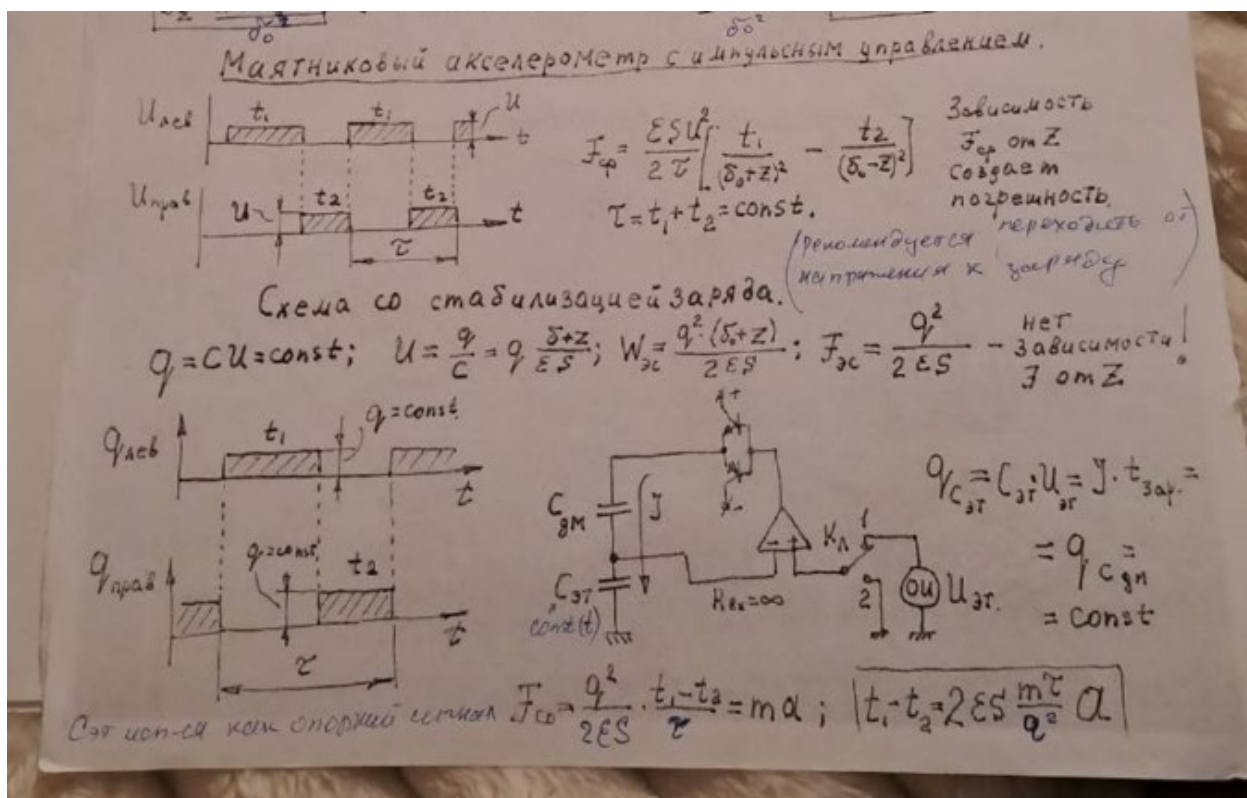 δ₀² δ₀²
Маятниковый акселерометр с импульсным управлением.
Uлев t₁ t₁ U t
Uправ U t₂ t₂ t
τ
Fср = εSU²/2τ [t₁/(δ₀+z)² − t₂/(δ₀−z)²]
τ = t₁ + t₂ = const.
Зависимость
Fср от Z
создает
погрешность.
(рекомендуется переходить от
напряжения к заряду)
Схема со стабилизацией заряда.
q = CU = const; U = q/C = q δ+z/εS; Wэс = q²·(δ₀+z)/2εS; Fэс = q²/2εS – нет
зависимости!
F от Z
qлев t₁ q=const t
qправ q=const t₂ t
τ
Cдм J
Cэт Kвх=∞
const(t)
Kл 1
2 ОИ Uэт.
qCэт = Cэт·Uэт = J·tзар. =
= qCдм =
= const
Cэт исп-ся как опорный сигнал Fср = q²/2εS · t₁−t₂/τ = ma; t₁−t₂=2εS mτ/q² a